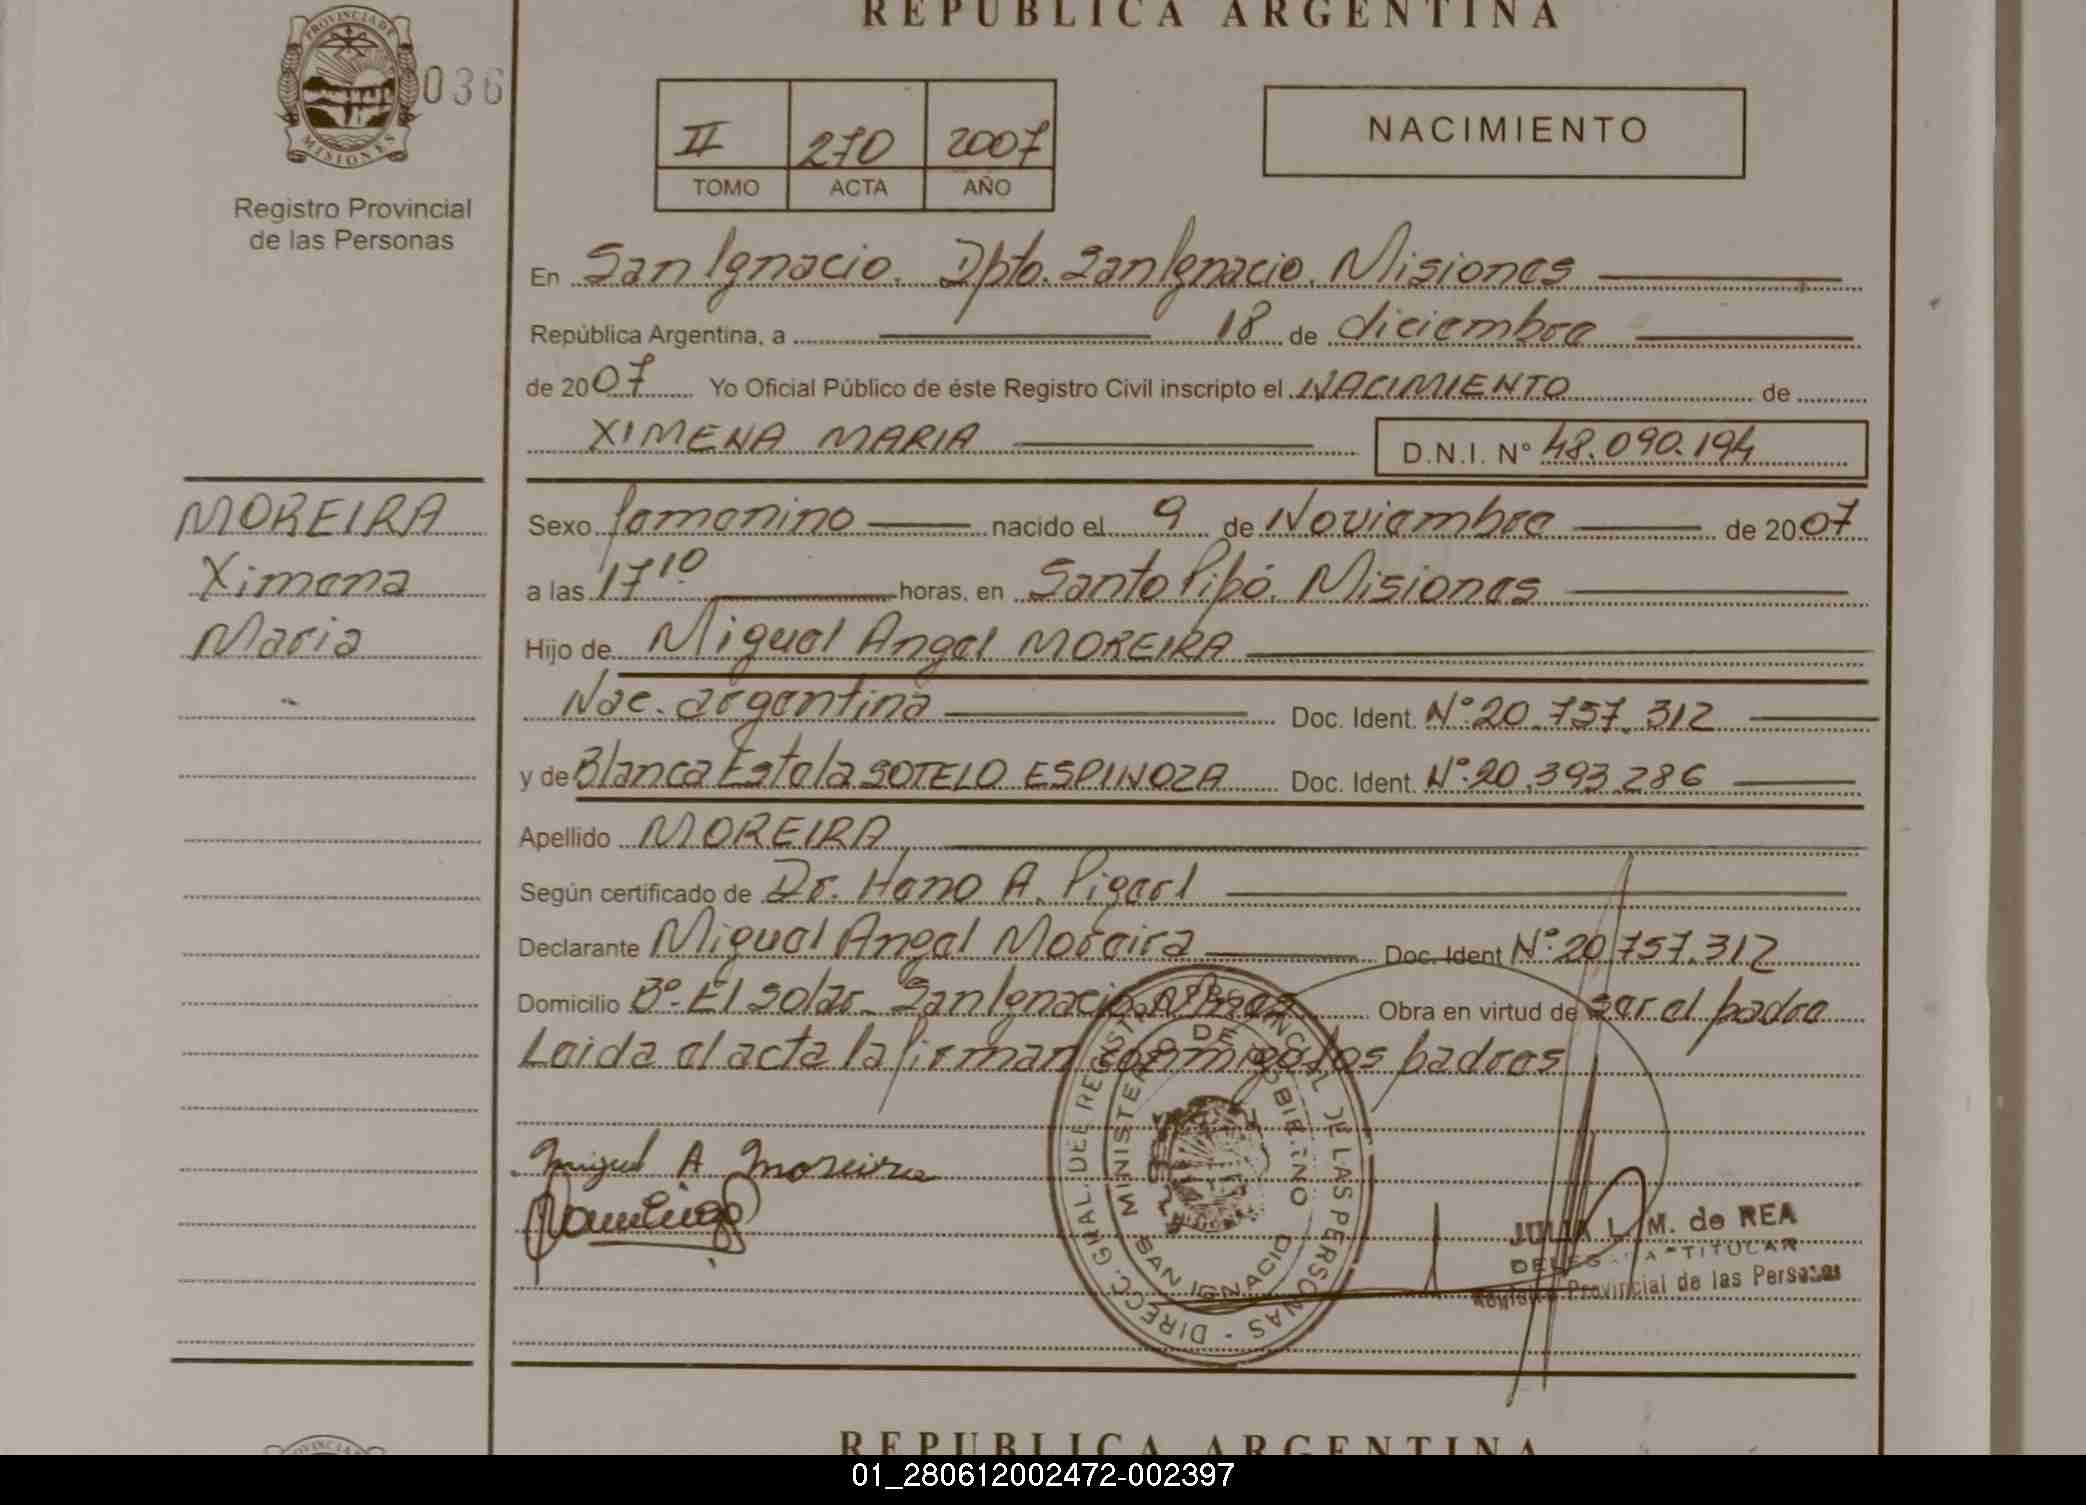 REPUBLICA ARGENTINA
PROVINCIA DE
MISIONES
036
Registro Provincial
de las Personas
II 270 2007
TOMO ACTA AÑO
NACIMIENTO
En San Ignacio. Dpto. San Ignacio. Misiones
República Argentina, a 18 de diciembre
de 2007 Yo Oficial Público de éste Registro Civil inscripto el NACIMIENTO de
XIMENA MARIA D.N.I. Nº 48.090.194
MOREIRA
Ximena
Maria
Sexo femenino nacido el 9 de Noviembre de 2007
a las 17 10 horas, en Santo Pipó. Misiones
Hijo de Miguel Angel MOREIRA
Nac. argentina Doc. Ident. Nº 20.757.312
y de Blanca Estela SOTELO ESPINOZA Doc. Ident. Nº 20.393.286
Apellido MOREIRA
Según certificado de Dr. Hano A.
Declarante Miguel Angel Moreira Doc. Ident Nº 20.757.312
Domicilio Bº El Solar. San Ignacio Obra en virtud de ser el padre
Leida el acta la firman conmigo los padres
Miguel A Moreira
DIRECC. GRAL. DE REGISTRO PROVINCIAL DE LAS PERSONAS
MINISTERIO DE GOBIERNO
SAN IGNACIO
JULIA L. M. de REA
DELEGADA TITULAR
Registro Provincial de las Personas
REPUBLICA ARGENTINA
01_280612002472-002397